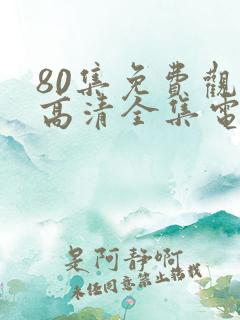 80集免費觀
高清全集電
是阿静啊
未经同意禁止搭载